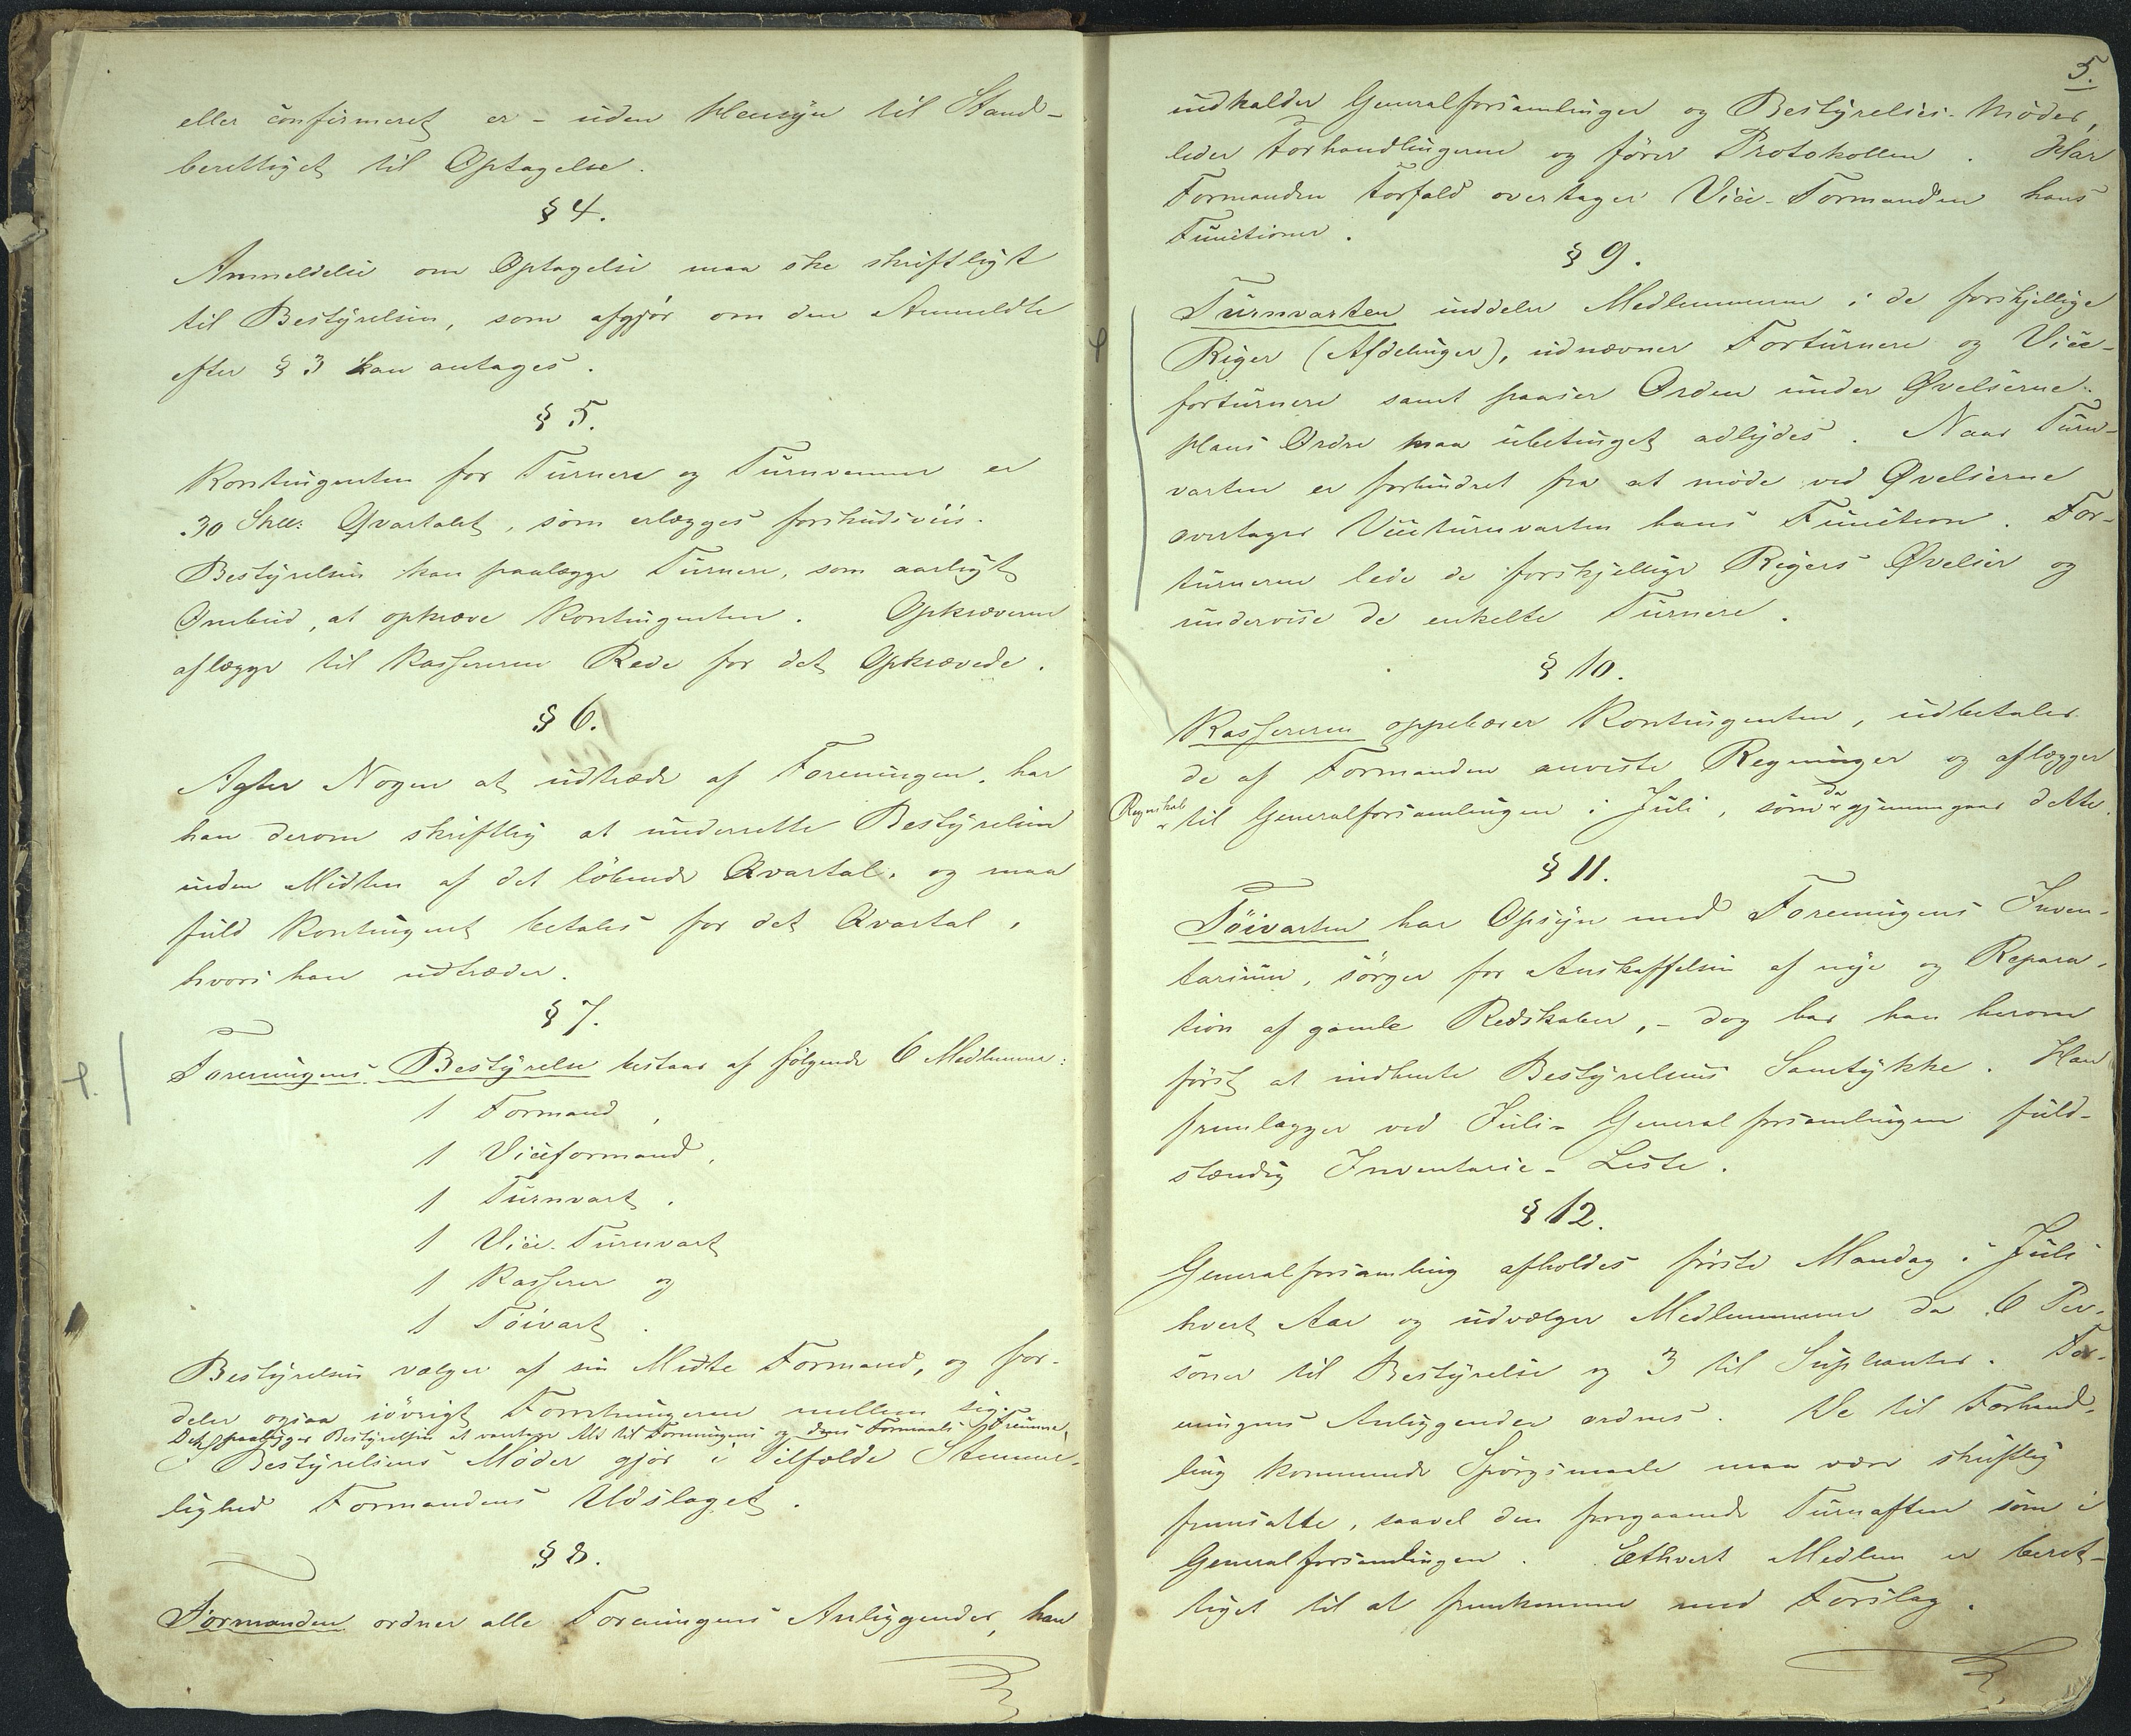 eller confirmeret er – uden Hensyn til Stand –
berettiget til Optagelse.
§ 4.
Anmeldelse om Optagelse maa ske skriftligt
til Bestyrelsen, som afgjør om den Anmeldte
efter § 3 kan antages.
§ 5.
Kontingenten for Turnere og Turnvenner er
30 Skill: Qvartalet, som erlægges forskudsviis.
Bestyrelsen kan paalægge Turnere, som aarligt
Ombud, at opkræve Kontingenten. Opkræverne
aflægge til Kassereren Rede for det Opkrævede.
§ 6.
Agter Nogen at udtræde af Foreningen, har
han derom skriftlig at underrette Bestyrelsen
inden Midten af det løbende Qvartal, og maa
fuld Kontingent betales for det Qvartal,
hvori han udtræder.
§ 7.
Foreningens Bestyrelse bestaar af følgende 6 Medlemmer:
1 Formand,
1 Viceformand,
1 Turnvart,
1 Vice-Turnvart
1 Kasserer og
1 Töivart.
Bestyrelsen vælger af sin Midte Formand, og for-
deler ogsaa iøvrigt Forretningerne mellem sig.
Det paaligger Bestyrelsen at varetage Alt til Foreningens og dens Formaals Fremme,
I Bestyrelsens Møder gjør i Tilfælde Stemme-
lighed Formandens Udslaget.
§ 8.
Formanden ordner alle Foreningens Anliggender, han
5.
indkalder Generalforsamlinger og Bestyrelses-Møder,
leder Forhandlingerne og fører Protokollen. Har
Formanden Forfald overtager Vice-Formanden hans
Functioner.
§ 9.
Turnvarten inddeler Medlemmerne i de forskjellige
Riger (Afdelinger), udnævner Forturnere og Vice-
forturnere samt paaser Orden under Øvelserne.
Hans Ordre maa ubetinget adlydes. Naar Turn-
varten er forhindret fra at møde ved Øvelserne
overtager Viceturnvarten hans Function. For-
turnerne lede de forskjellige Rigers Øvelser og
undervise de enkelte Turnere.
§ 10.
Kassereren oppebærer Kontingenten, udbetaler
de af Formanden anviste Regninger og aflægger
Regnskab til Generalforsamlingen i Juli, som da gjennemgaar dette.
§ 11.
Töivarten har Opsyn med Foreningens Inven-
tarium, sørger for Anskaffelsen af nye og Repara-
tion af gamle Redskaber, – dog har han herom
først at indhente Bestyrelsens Samtykke. Han
fremlægger ved Juli-Generalforsamlingen fuld-
stændig Inventarie-Liste.
§ 12.
Generalforsamling afholdes første Mandag i Juli
hvert Aar og udvælger Medlemmerne da 6 Per-
soner til Bestyrelse og 3 til Supleanter. For-
eningens Anliggender ordnes. De til Forhand-
ling kommende Spørgsmaale maa være skriftlig
fremsatte, saavel den foregaaende Turnaften som i
Generalforsamlingen. Ethvert Medlem er beret-
tiget til at fremkomme med Forslag.